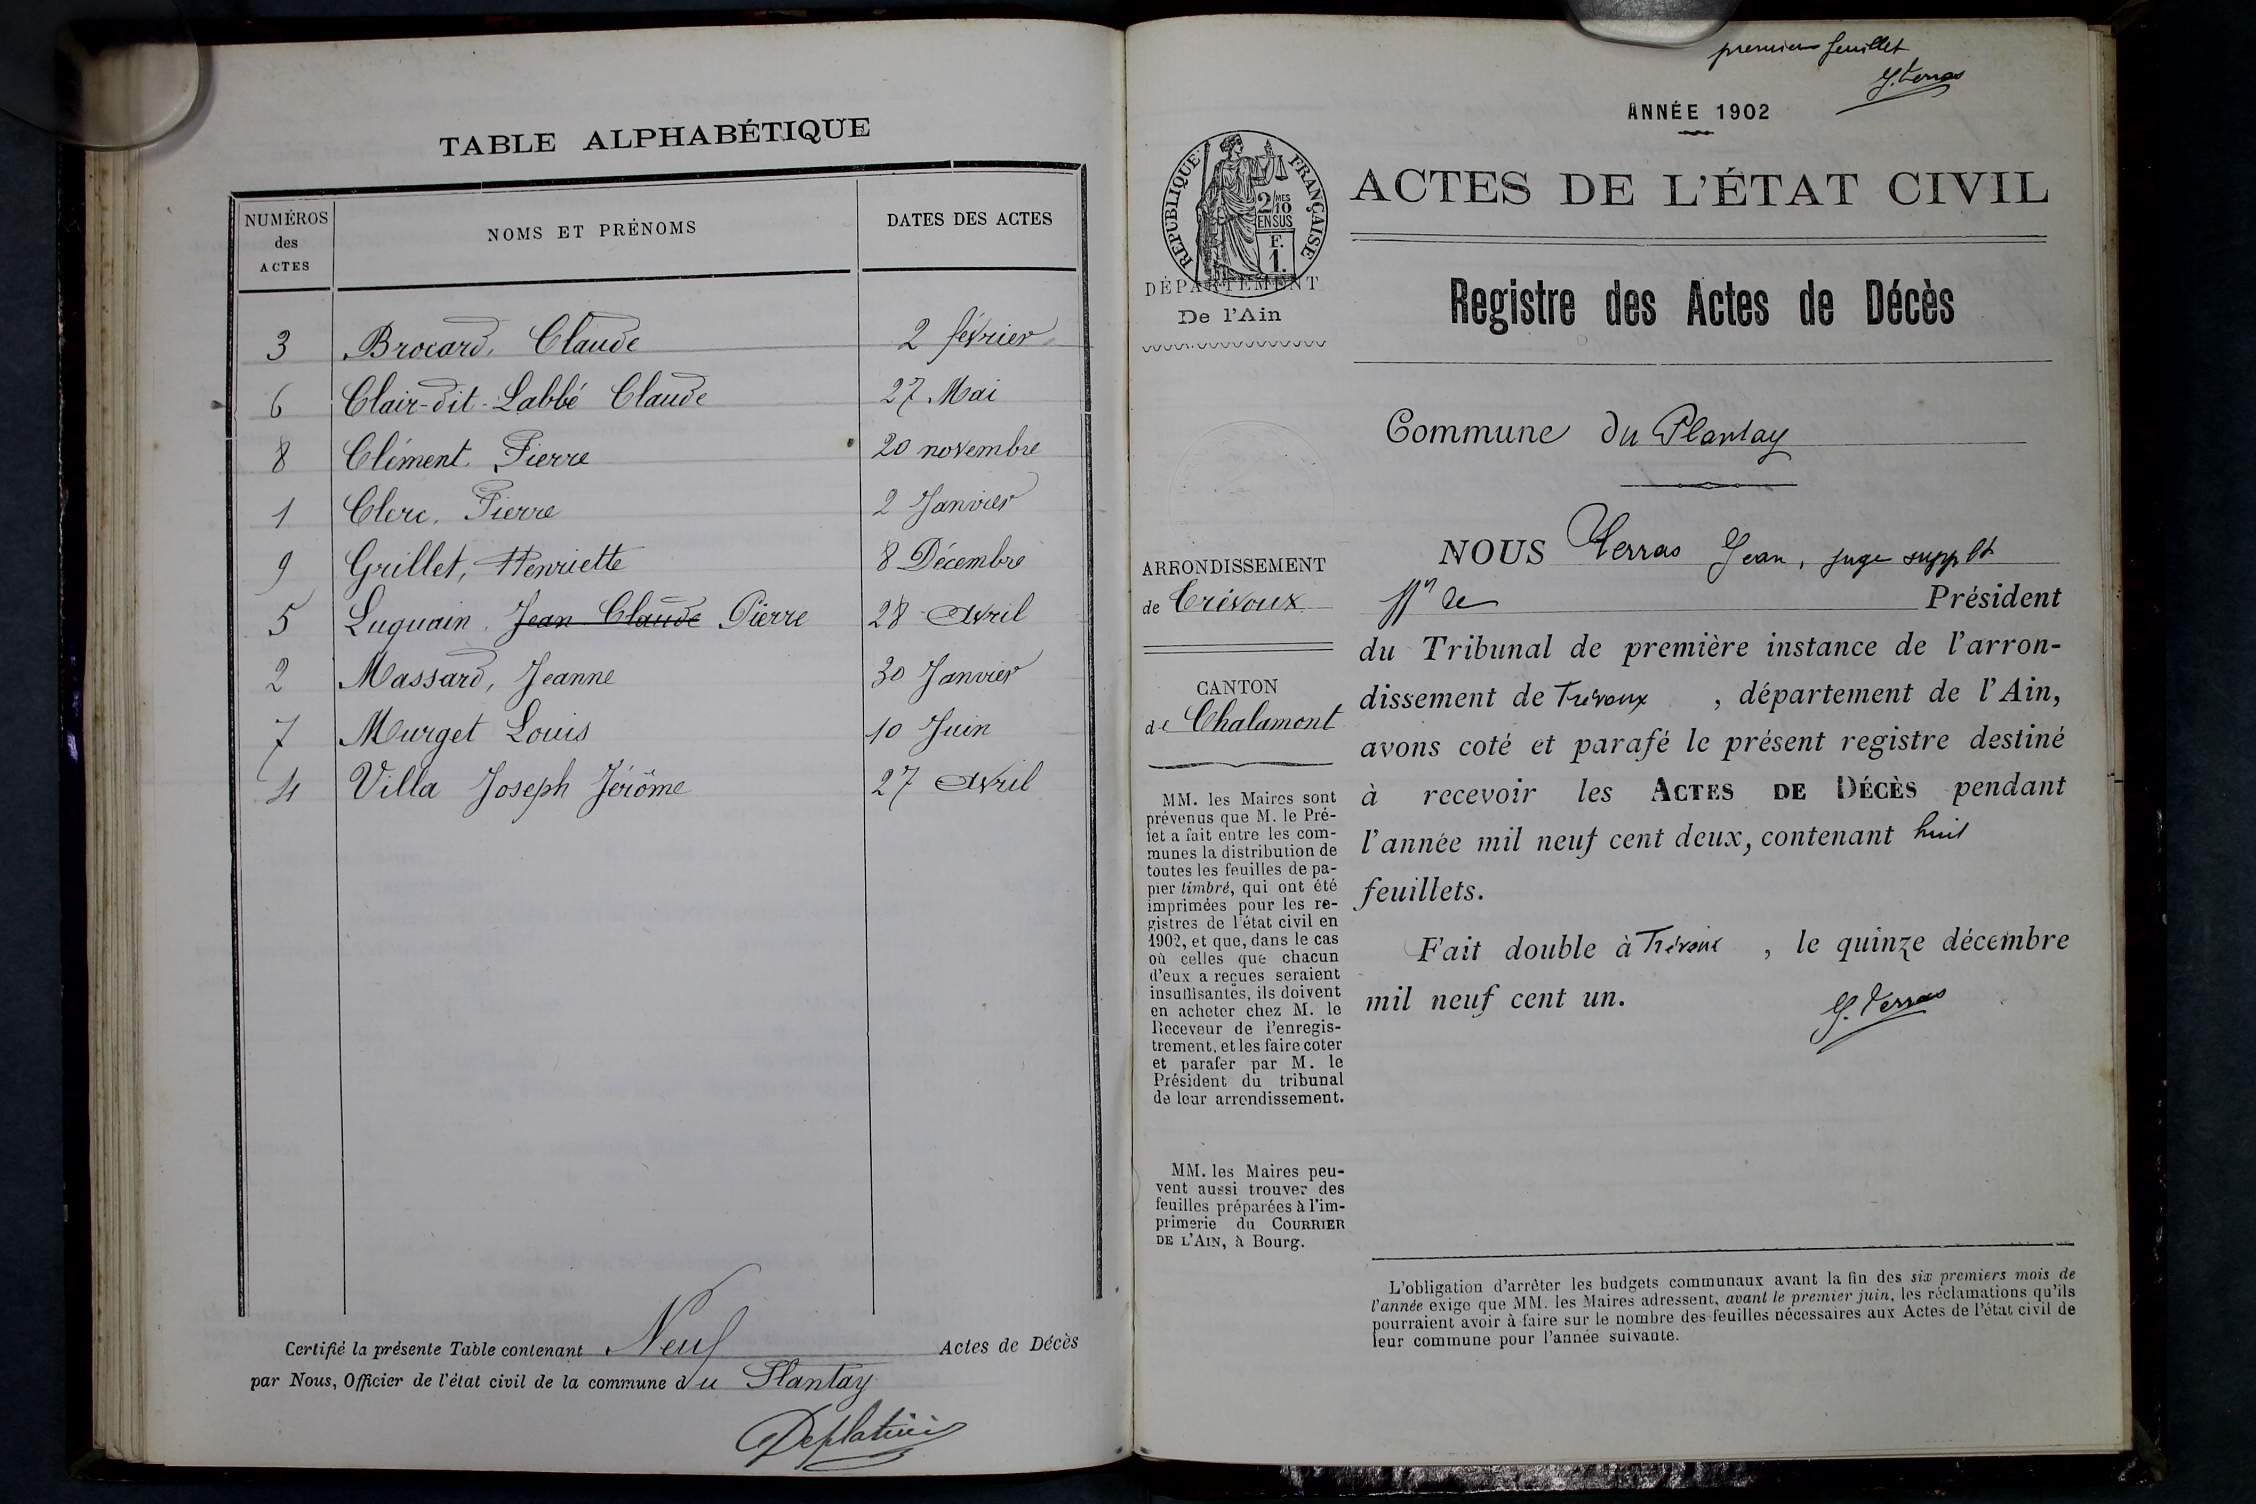 TABLE ALPHABÉTIQUE
NUMÉROS des ACTES
NOMS ET PRÉNOMS
DATES DES ACTES
3 Brocard, Claude 2 février
6 Clair-dit-Labbé Claude 27 Mai
8 Clément Pierre 20 novembre
1 Clerc, Pierre 2 Janvier
9 Grillet, Henriette 8 Décembre
5 Luquain, Jean Claude Pierre 28 Avril
2 Massard, Jeanne 30 Janvier
7 Murget Louis 10 Juin
4 Villa Joseph Jérôme 27 Avril
Certifié la présente Table contenant Neuf Actes de Décès
par Nous, Officier de l'état civil de la commune du Plantay
premier feuillet
J. Verras
ANNÉE 1902
RÉPUBLIQUE FRANÇAISE
2/10 MES
EN SUS
F.
1.
ACTES DE L'ÉTAT CIVIL
DÉPARTEMENT
De l'Ain
Registre des Actes de Décès
Commune du Plantay
ARRONDISSEMENT
de Trévoux
CANTON
de Chalamont
MM. les Maires sont
prévenus que M. le Pré-
fet a fait entre les com-
munes la distribution de
toutes les feuilles de pa-
pier timbré, qui ont été
imprimées pour les re-
gistres de l'état civil en
1902, et que, dans le cas
où celles que chacun
d'eux a reçues seraient
insuffisantes, ils doivent
en acheter chez M. le
Receveur de l'enregis-
trement, et les faire coter
et parafer par M. le
Président du tribunal
de leur arrondissement.
MM. les Maires peu-
vent aussi trouver des
feuilles préparées à l'im-
primerie du COURRIER
DE L'AIN, à Bourg.
NOUS Verras Jean, juge supplt
ffn de Président
du Tribunal de première instance de l'arron-
dissement de Trévoux, département de l'Ain,
avons coté et parafé le présent registre destiné
à recevoir les ACTES DE DÉCÈS pendant
l'année mil neuf cent deux, contenant huit
feuillets.
Fait double à Trévoux, le quinze décembre
mil neuf cent un.
J. Verras
L'obligation d'arrêter les budgets communaux avant la fin des six premiers mois de
l'année exige que MM. les Maires adressent, avant le premier juin, les réclamations qu'ils
pourraient avoir à faire sur le nombre des feuilles nécessaires aux Actes de l'état civil de
leur commune pour l'année suivante.